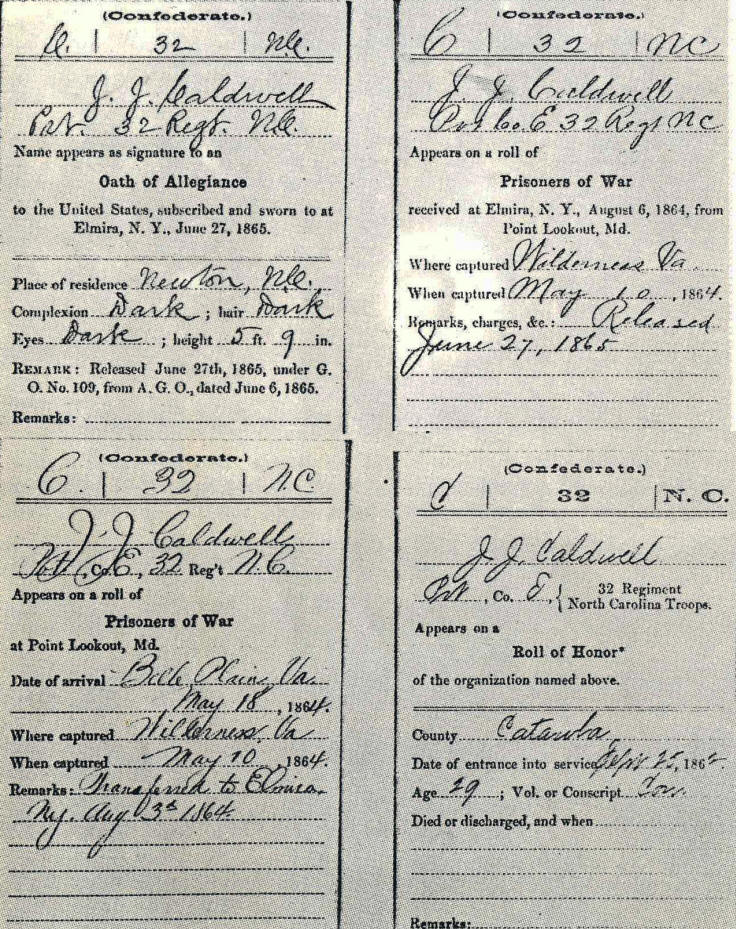 (Confederate.)
C. | 32 | N.C.
J. J. Caldwell
Pvt. 32 Regt. N.C.
Name appears as signature to an
Oath of Allegiance
to the United States, subscribed and sworn to at
Elmira, N. Y., June 27, 1865.
Place of residence Newton, N.C.
Complexion Dark ; hair Dark
Eyes Dark ; height 5 ft. 9 in.
REMARK: Released June 27th, 1865, under G.
O. No. 109, from A. G. O., dated June 6, 1865.
Remarks:
(Confederate.)
C | 32 | NC
J. J. Caldwell
Pvt Co. E 32 Regt NC
Appears on a roll of
Prisoners of War
received at Elmira, N. Y., August 6, 1864, from
Point Lookout, Md.
Where captured Wilderness Va.
When captured May 10, 1864.
Remarks, charges, &c.: Released
June 27, 1865
(Confederate.)
C. | 32 | NC
J. J. Caldwell
Pvt, Co. E, 32 Reg't N.C.
Appears on a roll of
Prisoners of War
at Point Lookout, Md.
Date of arrival Belle Plain, Va.
May 18, 1864.
Where captured Wilderness, Va
When captured May 10, 1864.
Remarks: Transferred to Elmira,
Ny. Aug 3d 1864
(Confederate.)
C | 32 | N. C.
J. J. Caldwell
Pvt, Co. E, { 32 Regiment
North Carolina Troops.
Appears on a
Roll of Honor*
of the organization named above.
County Catawba
Date of entrance into service Sept 25, 1862.
Age 29 ; Vol. or Conscript Con.
Died or discharged, and when
Remarks: